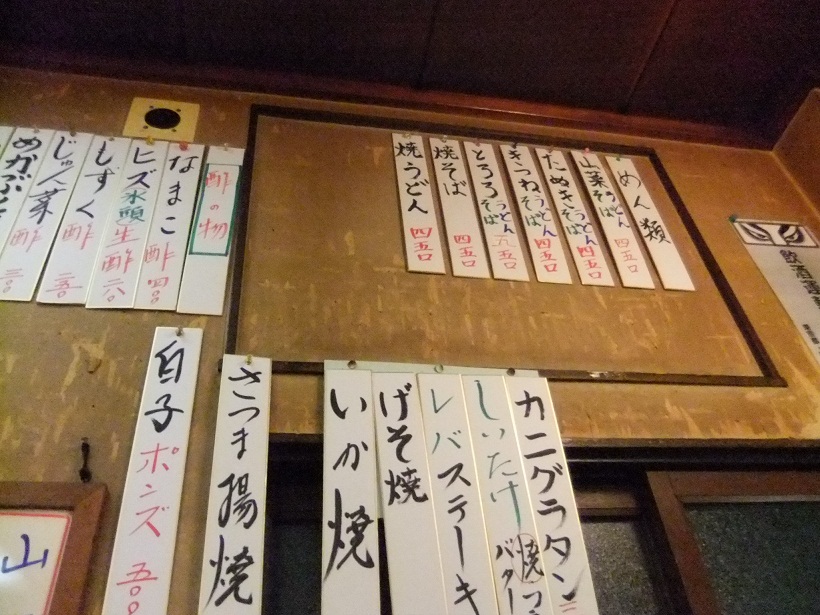 めん類
山菜そば うどん 四五〇
たぬきそば うどん 四五〇
きつねそば うどん 四五〇
とろろそば うどん
焼そば 四五〇
焼うどん 四五〇
酢の物
なまこ酢 四〇〇
ヒズ 氷頭 生酢
もずく酢 二五〇
じゅん菜酢
めかぶ酢 三〇〇
カニグラタン
しいたけ 焼 バター
レバステーキ
げそ焼
いか焼
さつま揚焼
白子ポンズ 五〇〇
飲酒運
山